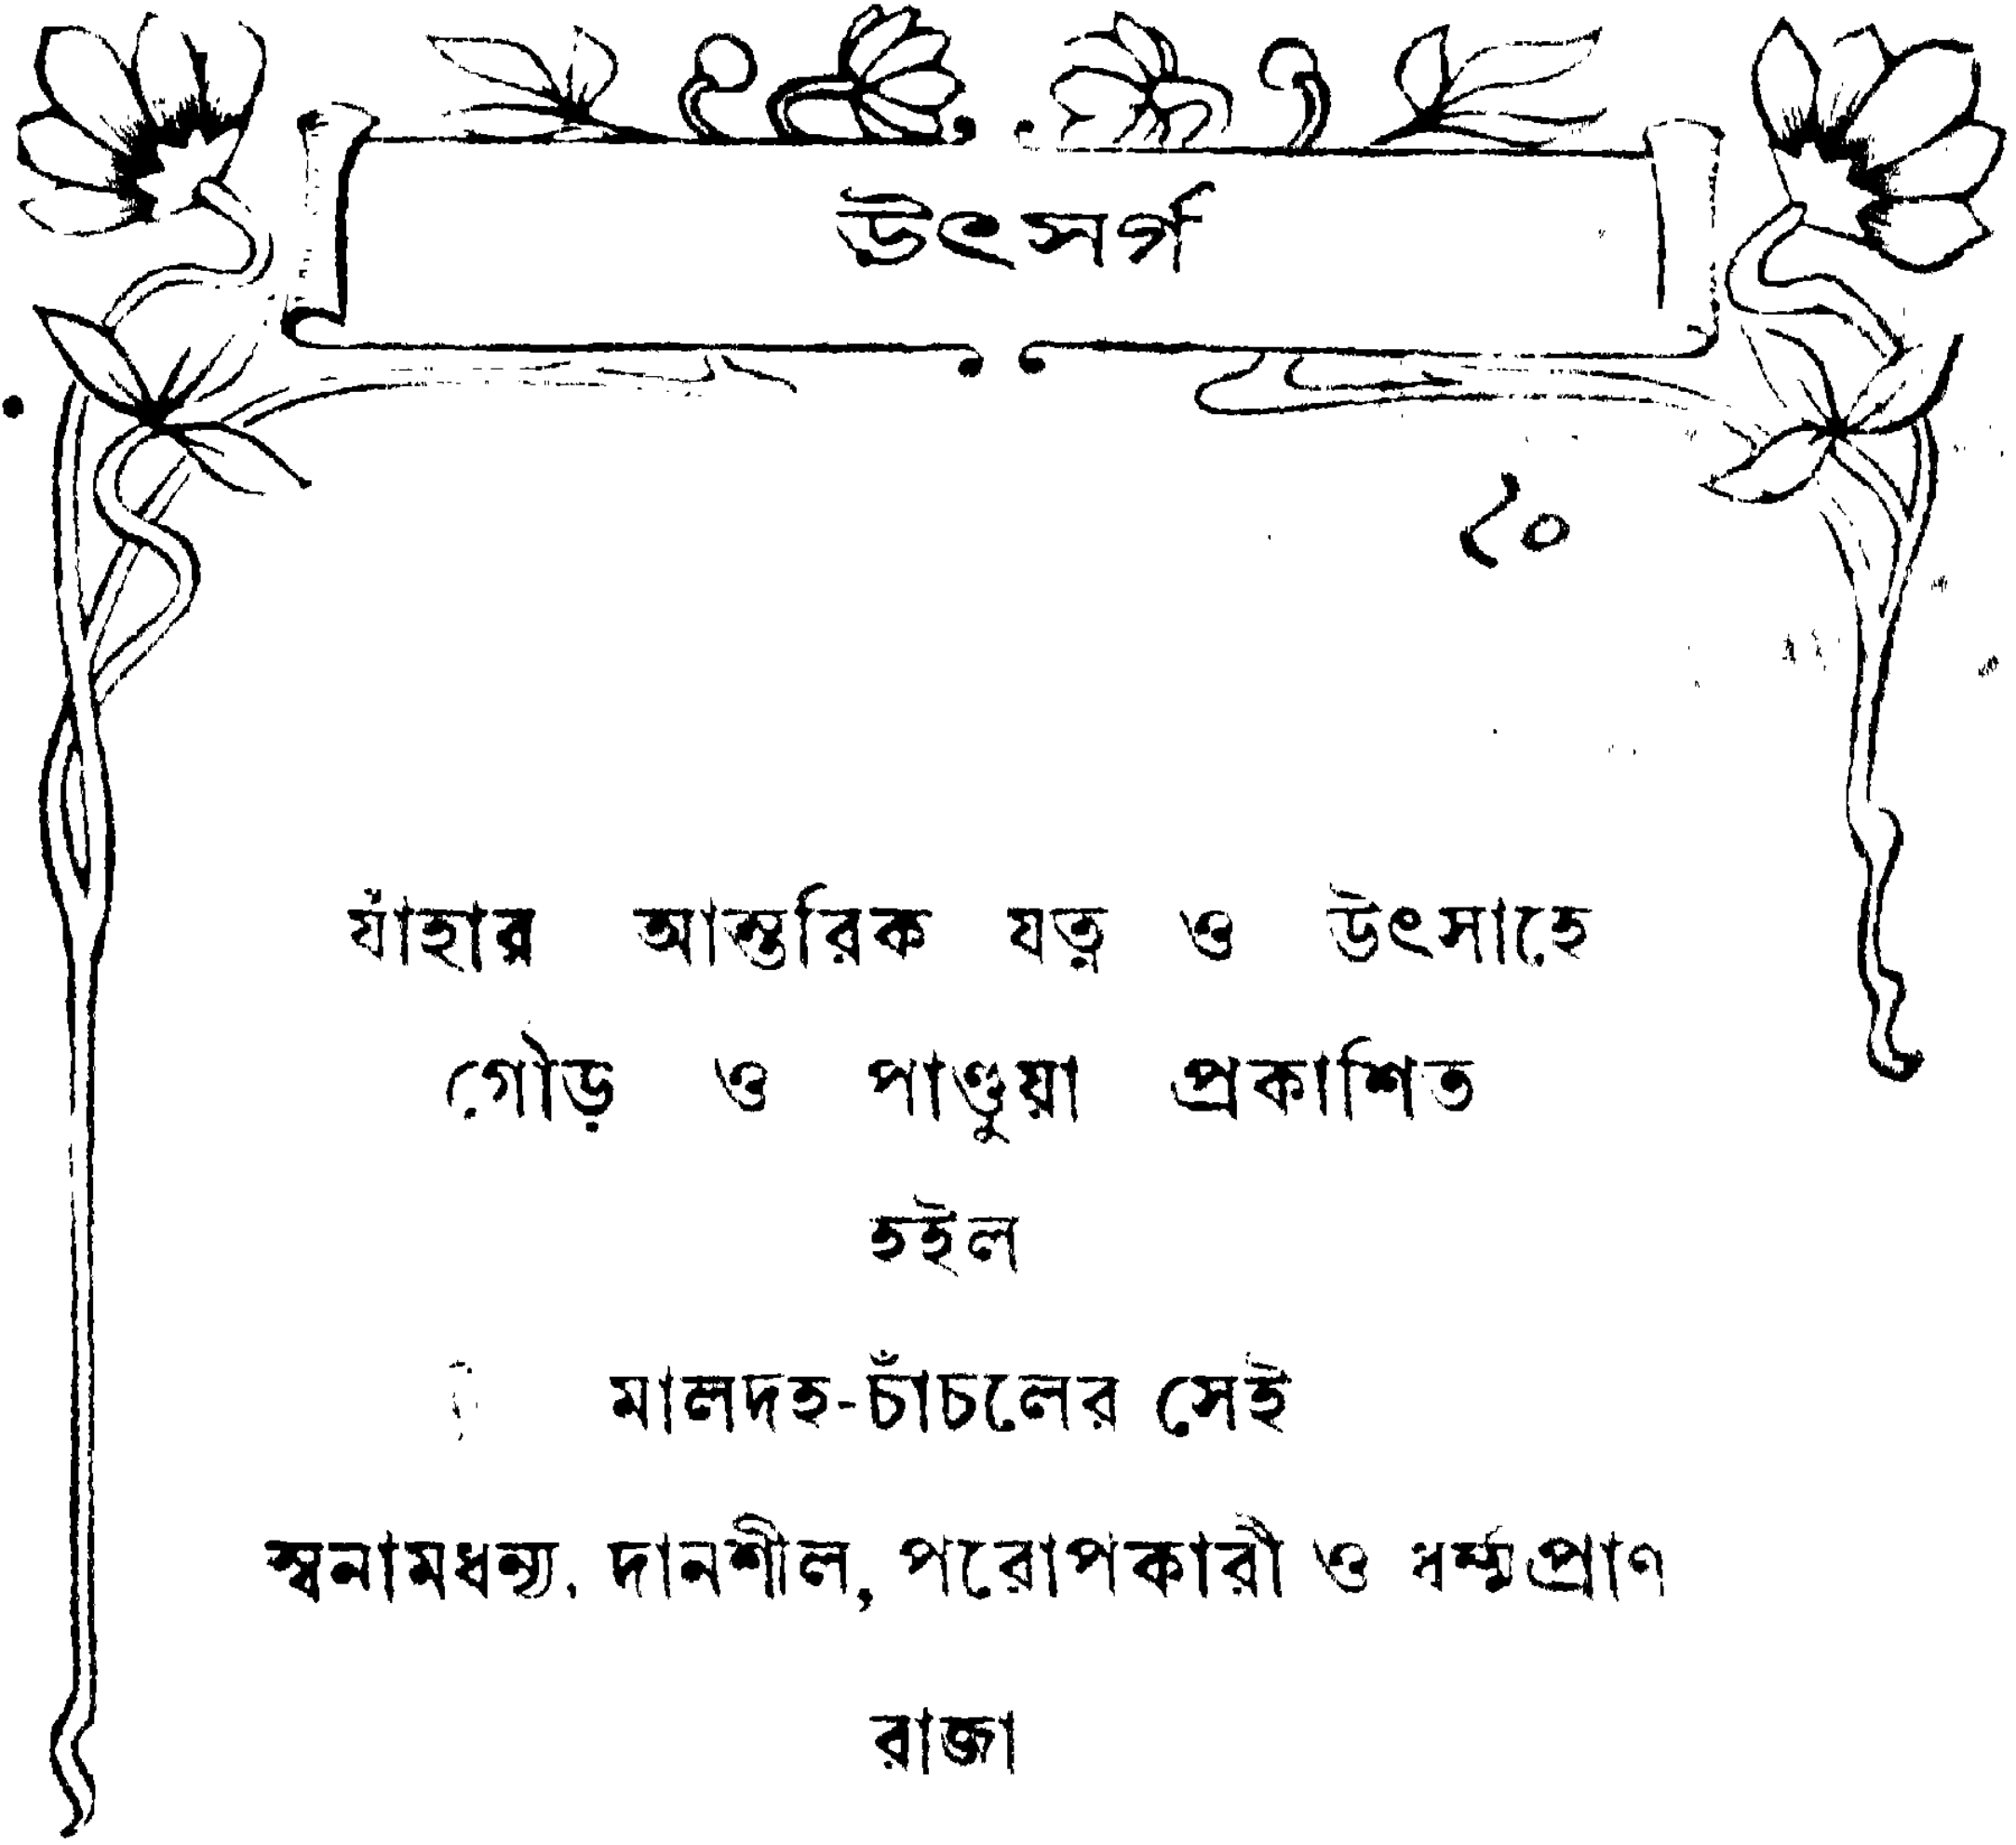 উৎসর্গ
যাঁহার আন্তরিক যত্ন ও উৎসাহে
গৌড় ও পাণ্ডুয়া প্রকাশিত
হইল
মালদহ-চাঁচলের সেই
স্বনামধন্য, দানশীল, পরোপকারী ও ধর্ম্মপ্রাণ
রাজা